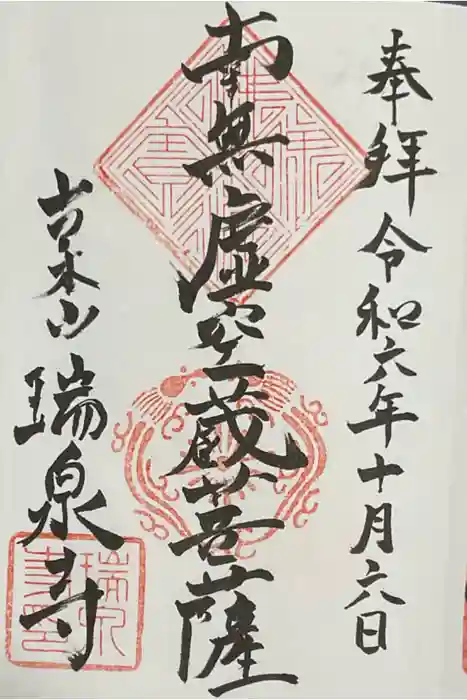 奉拝 令和六年十月六日
南無虚空蔵菩薩
吉木山 瑞泉寺